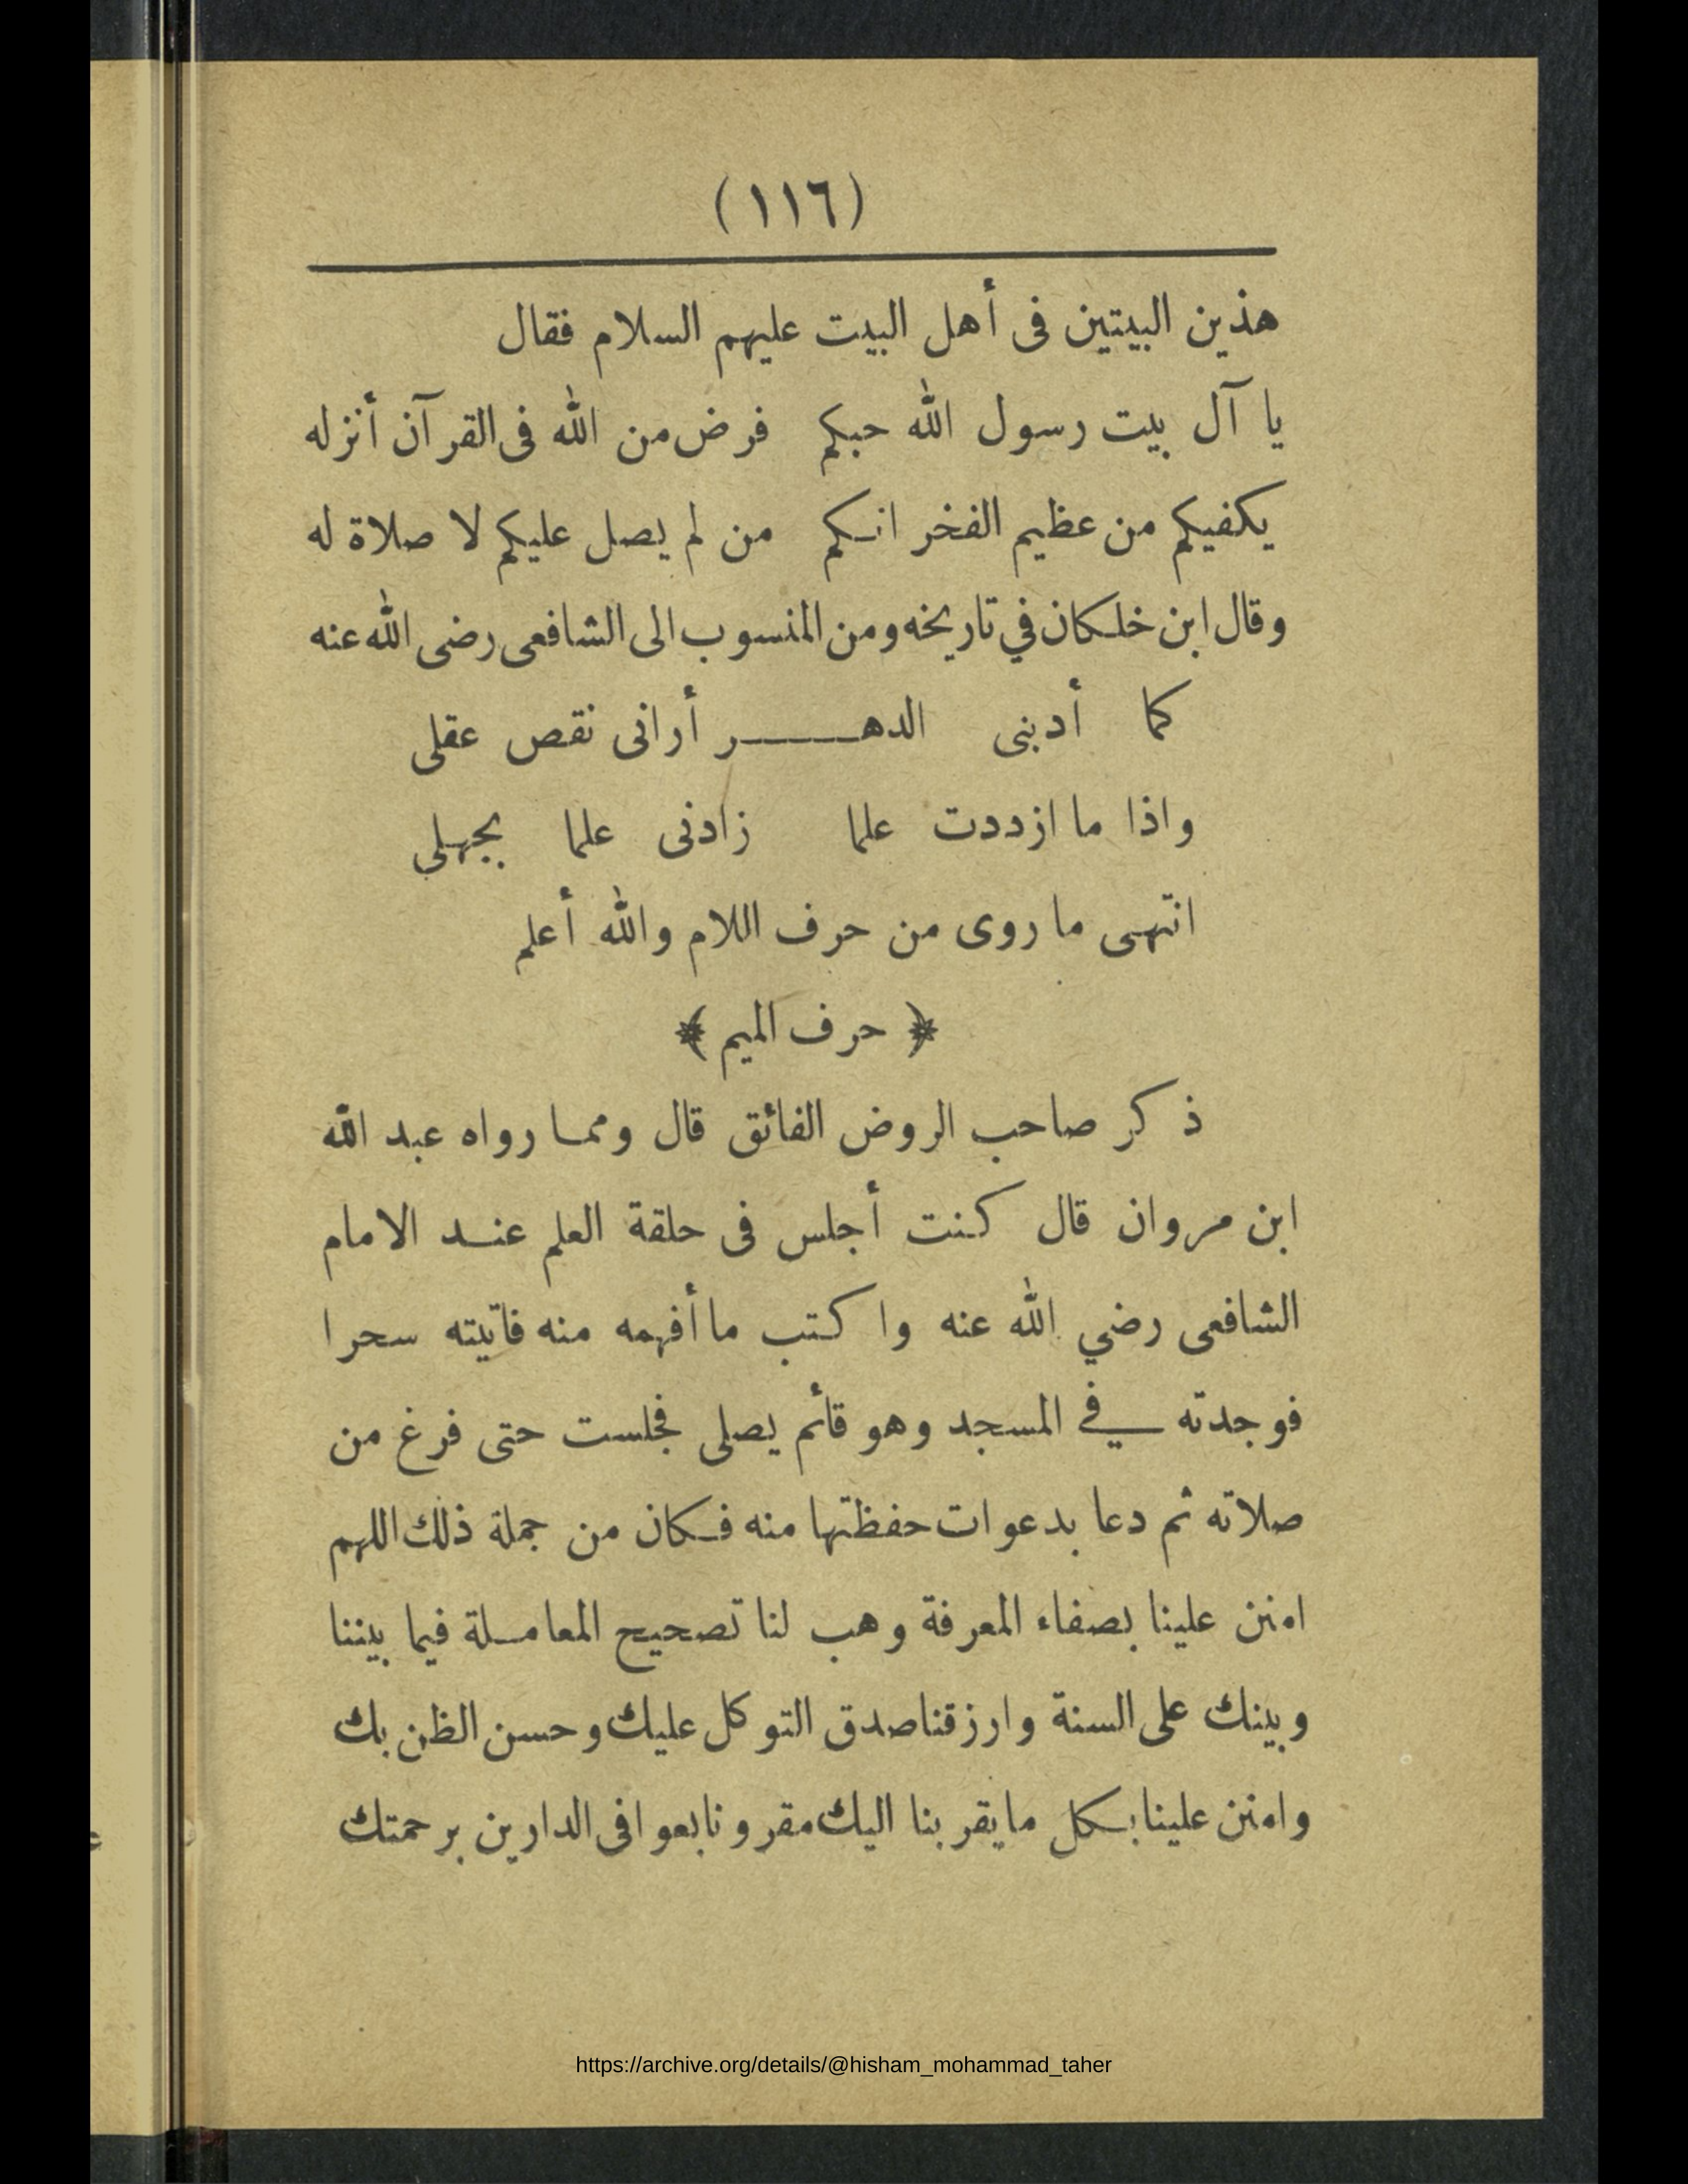 (١١٦)
هذين البيتين فى أهل البيت عليهم السلام فقال
يا آل بيت رسول الله حبكم فرض من الله فى القرآن أنزله
يكفيكم من عظيم الفخر انكم من لم يصل عليكم لا صلاة له
وقال ابن خلكان في تاريخه ومن المنسوب الى الشافعى رضى الله عنه
كما أدبنى الدهـــــر أرانى نقص عقلى
واذا ما ازددت علما زادنى علما بجهلي
انتهى ما روى من حرف اللام والله أعلم
﴿ حرف الميم ﴾
ذكر صاحب الروض الفائق قال ومما رواه عبد الله
ابن مروان قال كنت أجلس فى حلقة العلم عند الامام
الشافعى رضي الله عنه واكتب ما أفهمه منه فاتيته سحرا
فوجدته في المسجد وهو قائم يصلى فجلست حتى فرغ من
صلاته ثم دعا بدعوات حفظتها منه فكان من جملة ذلك اللهم
امنن علينا بصفاء المعرفة وهب لنا تصحيح المعاملة فيما بيننا
وبينك على السنة وارزقنا صدق التوكل عليك وحسن الظن بك
وامنن علينا بكل ما يقربنا اليك مقرونا بعوافى الدارين برحمتك
https://archive.org/details/@hisham_mohammad_taher